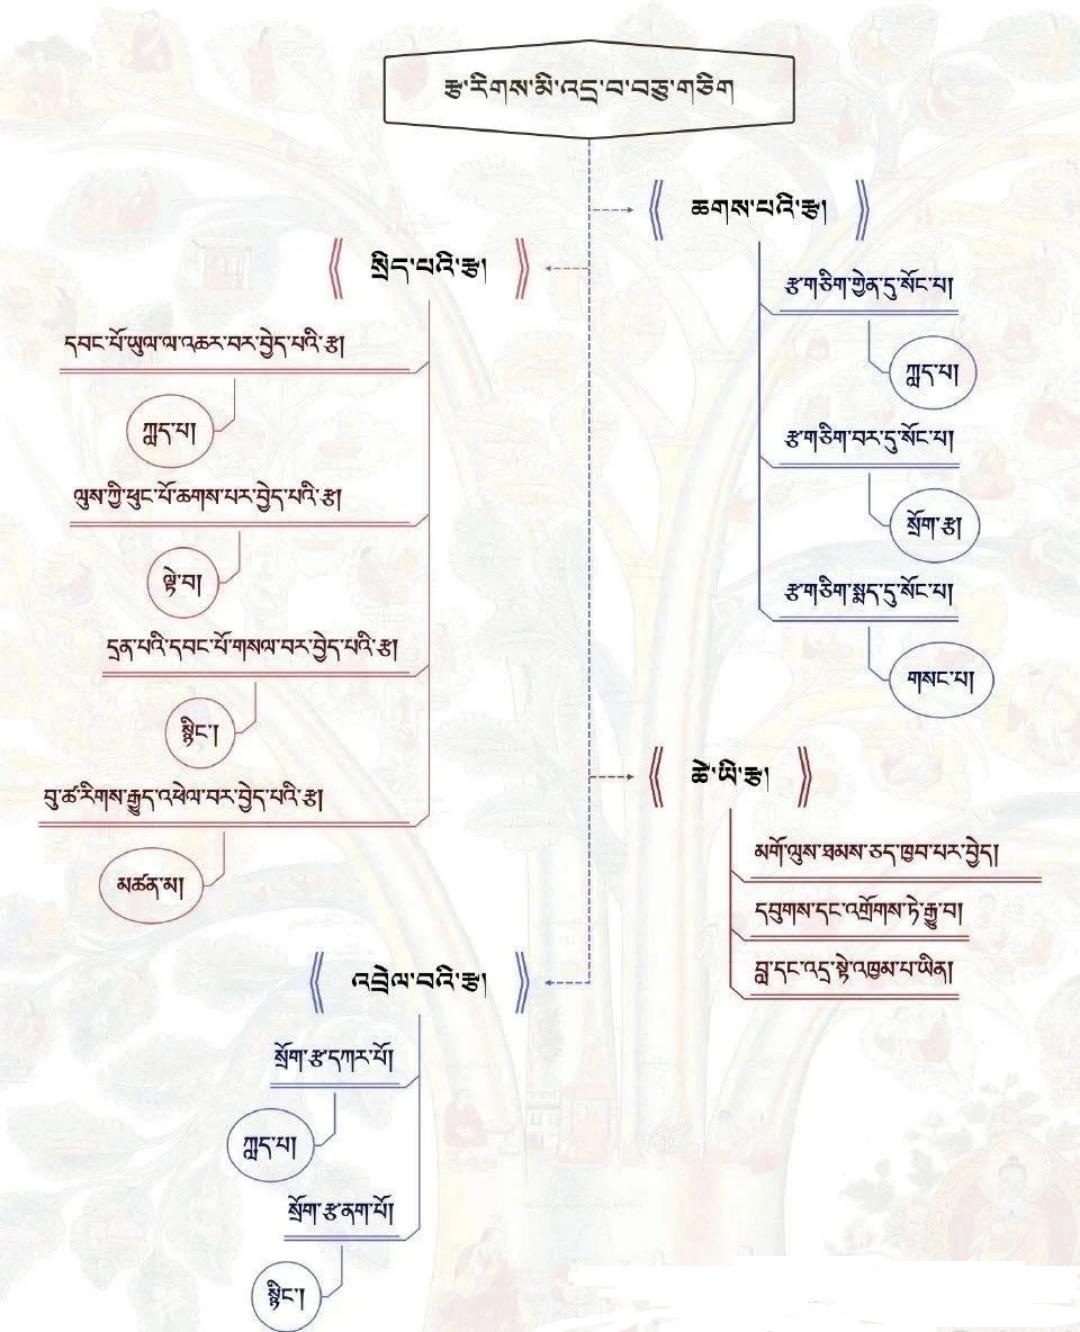 རྩ་རིགས་མི་འདྲ་བ་བཅུ་གཅིག
ཆགས་པའི་རྩ།
རྩ་གཅིག་གྱེན་དུ་སོང་པ།
ཀླད་པ།
རྩ་གཅིག་བར་དུ་སོང་པ།
སྲོག་རྩ།
རྩ་གཅིག་སྨད་དུ་སོང་པ།
གསང་པ།
སྲིད་པའི་རྩ།
དབང་པོ་ཡུལ་ལ་འཆར་བར་བྱེད་པའི་རྩ།
ཀླད་པ།
ལུས་ཀྱི་ཕུང་པོ་ཆགས་པར་བྱེད་པའི་རྩ།
ལྟེ་བ།
དྲན་པའི་དབང་པོ་གསལ་བར་བྱེད་པའི་རྩ།
སྙིང་།
བུ་ཚ་རིགས་རྒྱུད་འཕེལ་བར་བྱེད་པའི་རྩ།
མཚན་མ།
ཚེ་ཡི་རྩ།
མགོ་ལུས་ཐམས་ཅད་ཁྱབ་པར་བྱེད།
དབུགས་དང་འགྲོགས་ཏེ་རྒྱུ་བ།
བླ་དང་འདྲ་སྟེ་འཁྱམ་པ་ཡིན།
འབྲེལ་བའི་རྩ།
སྲོག་རྩ་དཀར་པོ།
ཀླད་པ།
སྲོག་རྩ་ནག་པོ།
སྙིང་།